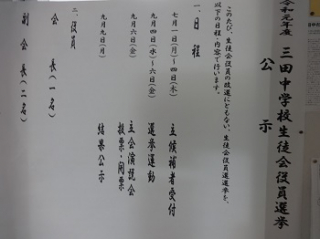 令和元年度
三田中学校生徒会役員選挙
公示
このたび、生徒会役員の改選にともない、生徒会役員選挙を、
以下の日程・内容で行います。
一、日程
七月一日(月)~四日(木) 立候補者受付
九月四日(水)~六日(金) 選挙運動
九月六日(金) 立会演説会
投票・開票
九月九日(月) 結果公示
二、役員
会長(一名)
副会長(二名)